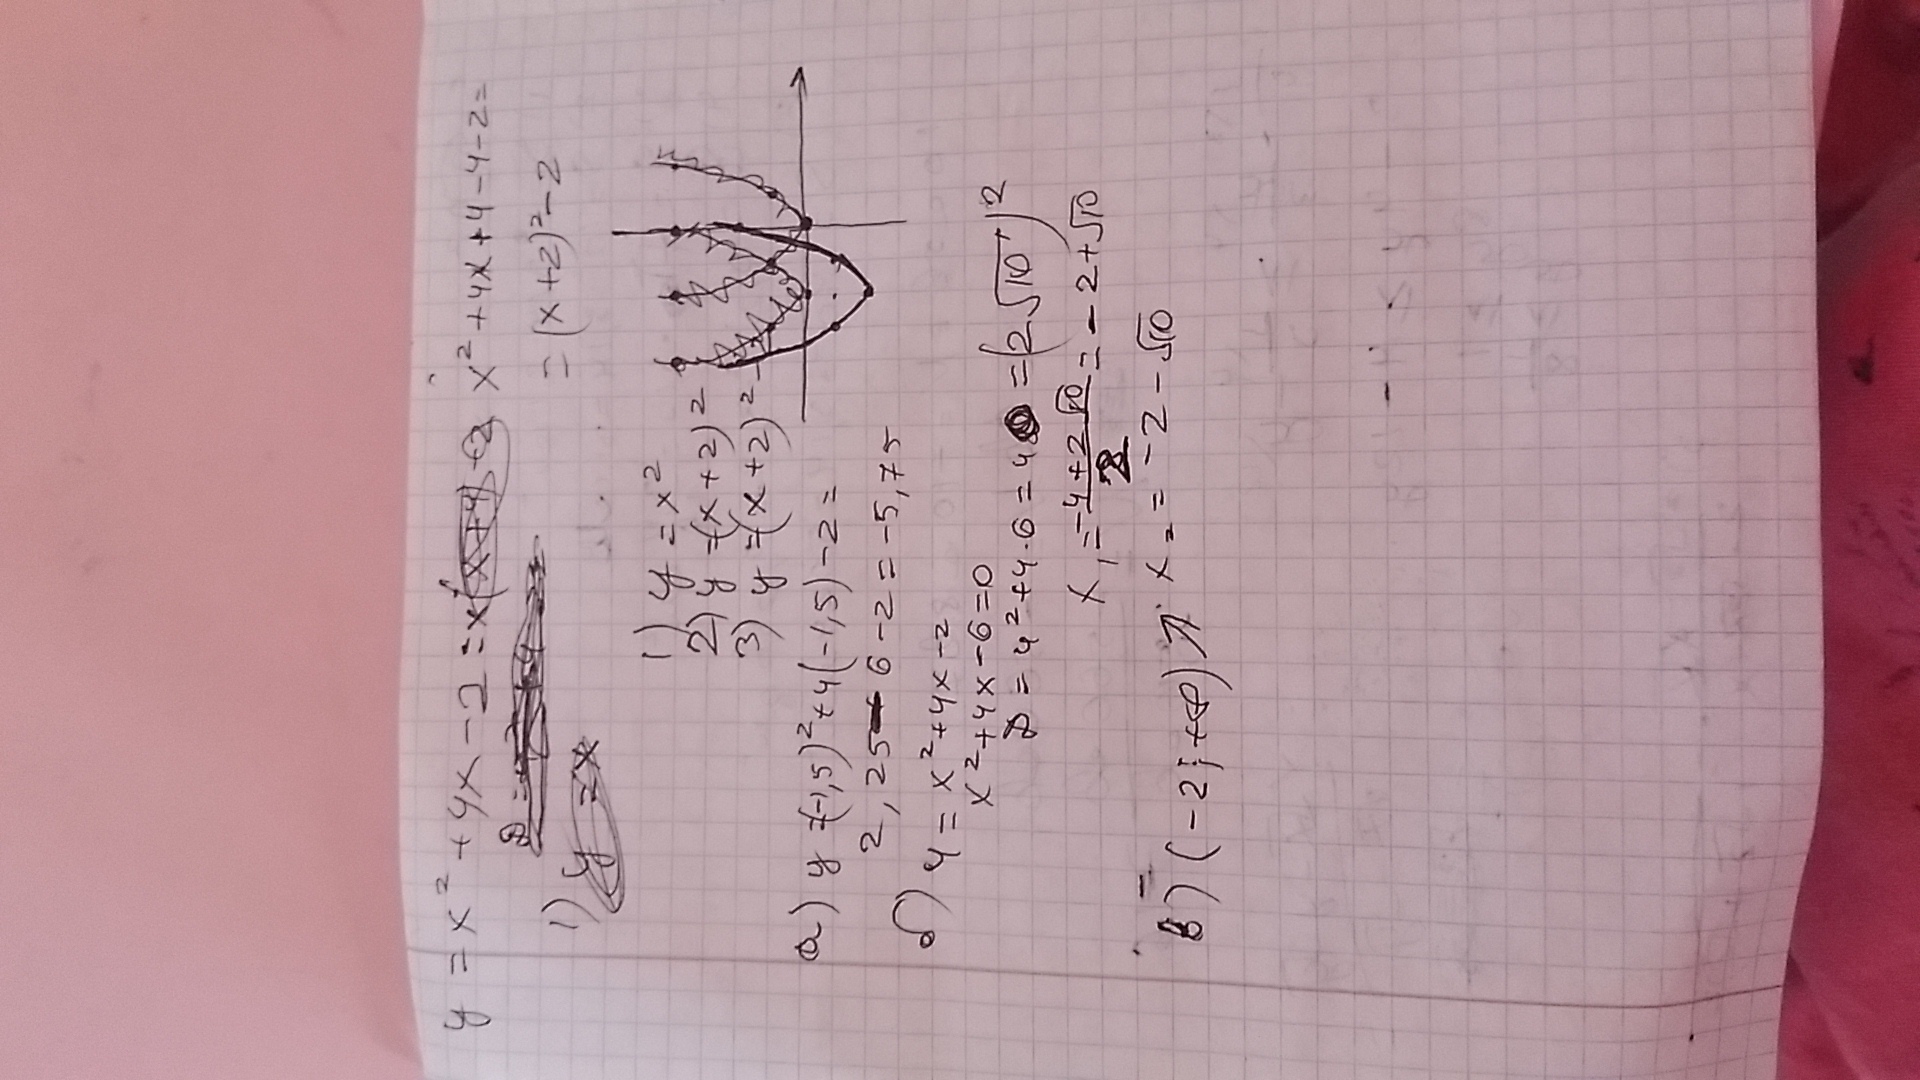 y = x² + 4x - 2 = x² + 4x + 4 - 4 - 2 =
= (x + 2)² - 2
1)
1) y = x²
2) y = (x + 2)²
3) y = (x + 2)² -
а) y = (-1,5)² + 4(-1,5) - 2 =
2,25 - 6 - 2 = -5,75
б) 4 = x² + 4x - 2
x² + 4x - 6 = 0
D = 4² + 4·6 = 40 = (2√10)²
x₁ = -4 + 2√10 / 2 = -2 + √10
x₂ = -2 - √10
в) (-2; +∞) ↗